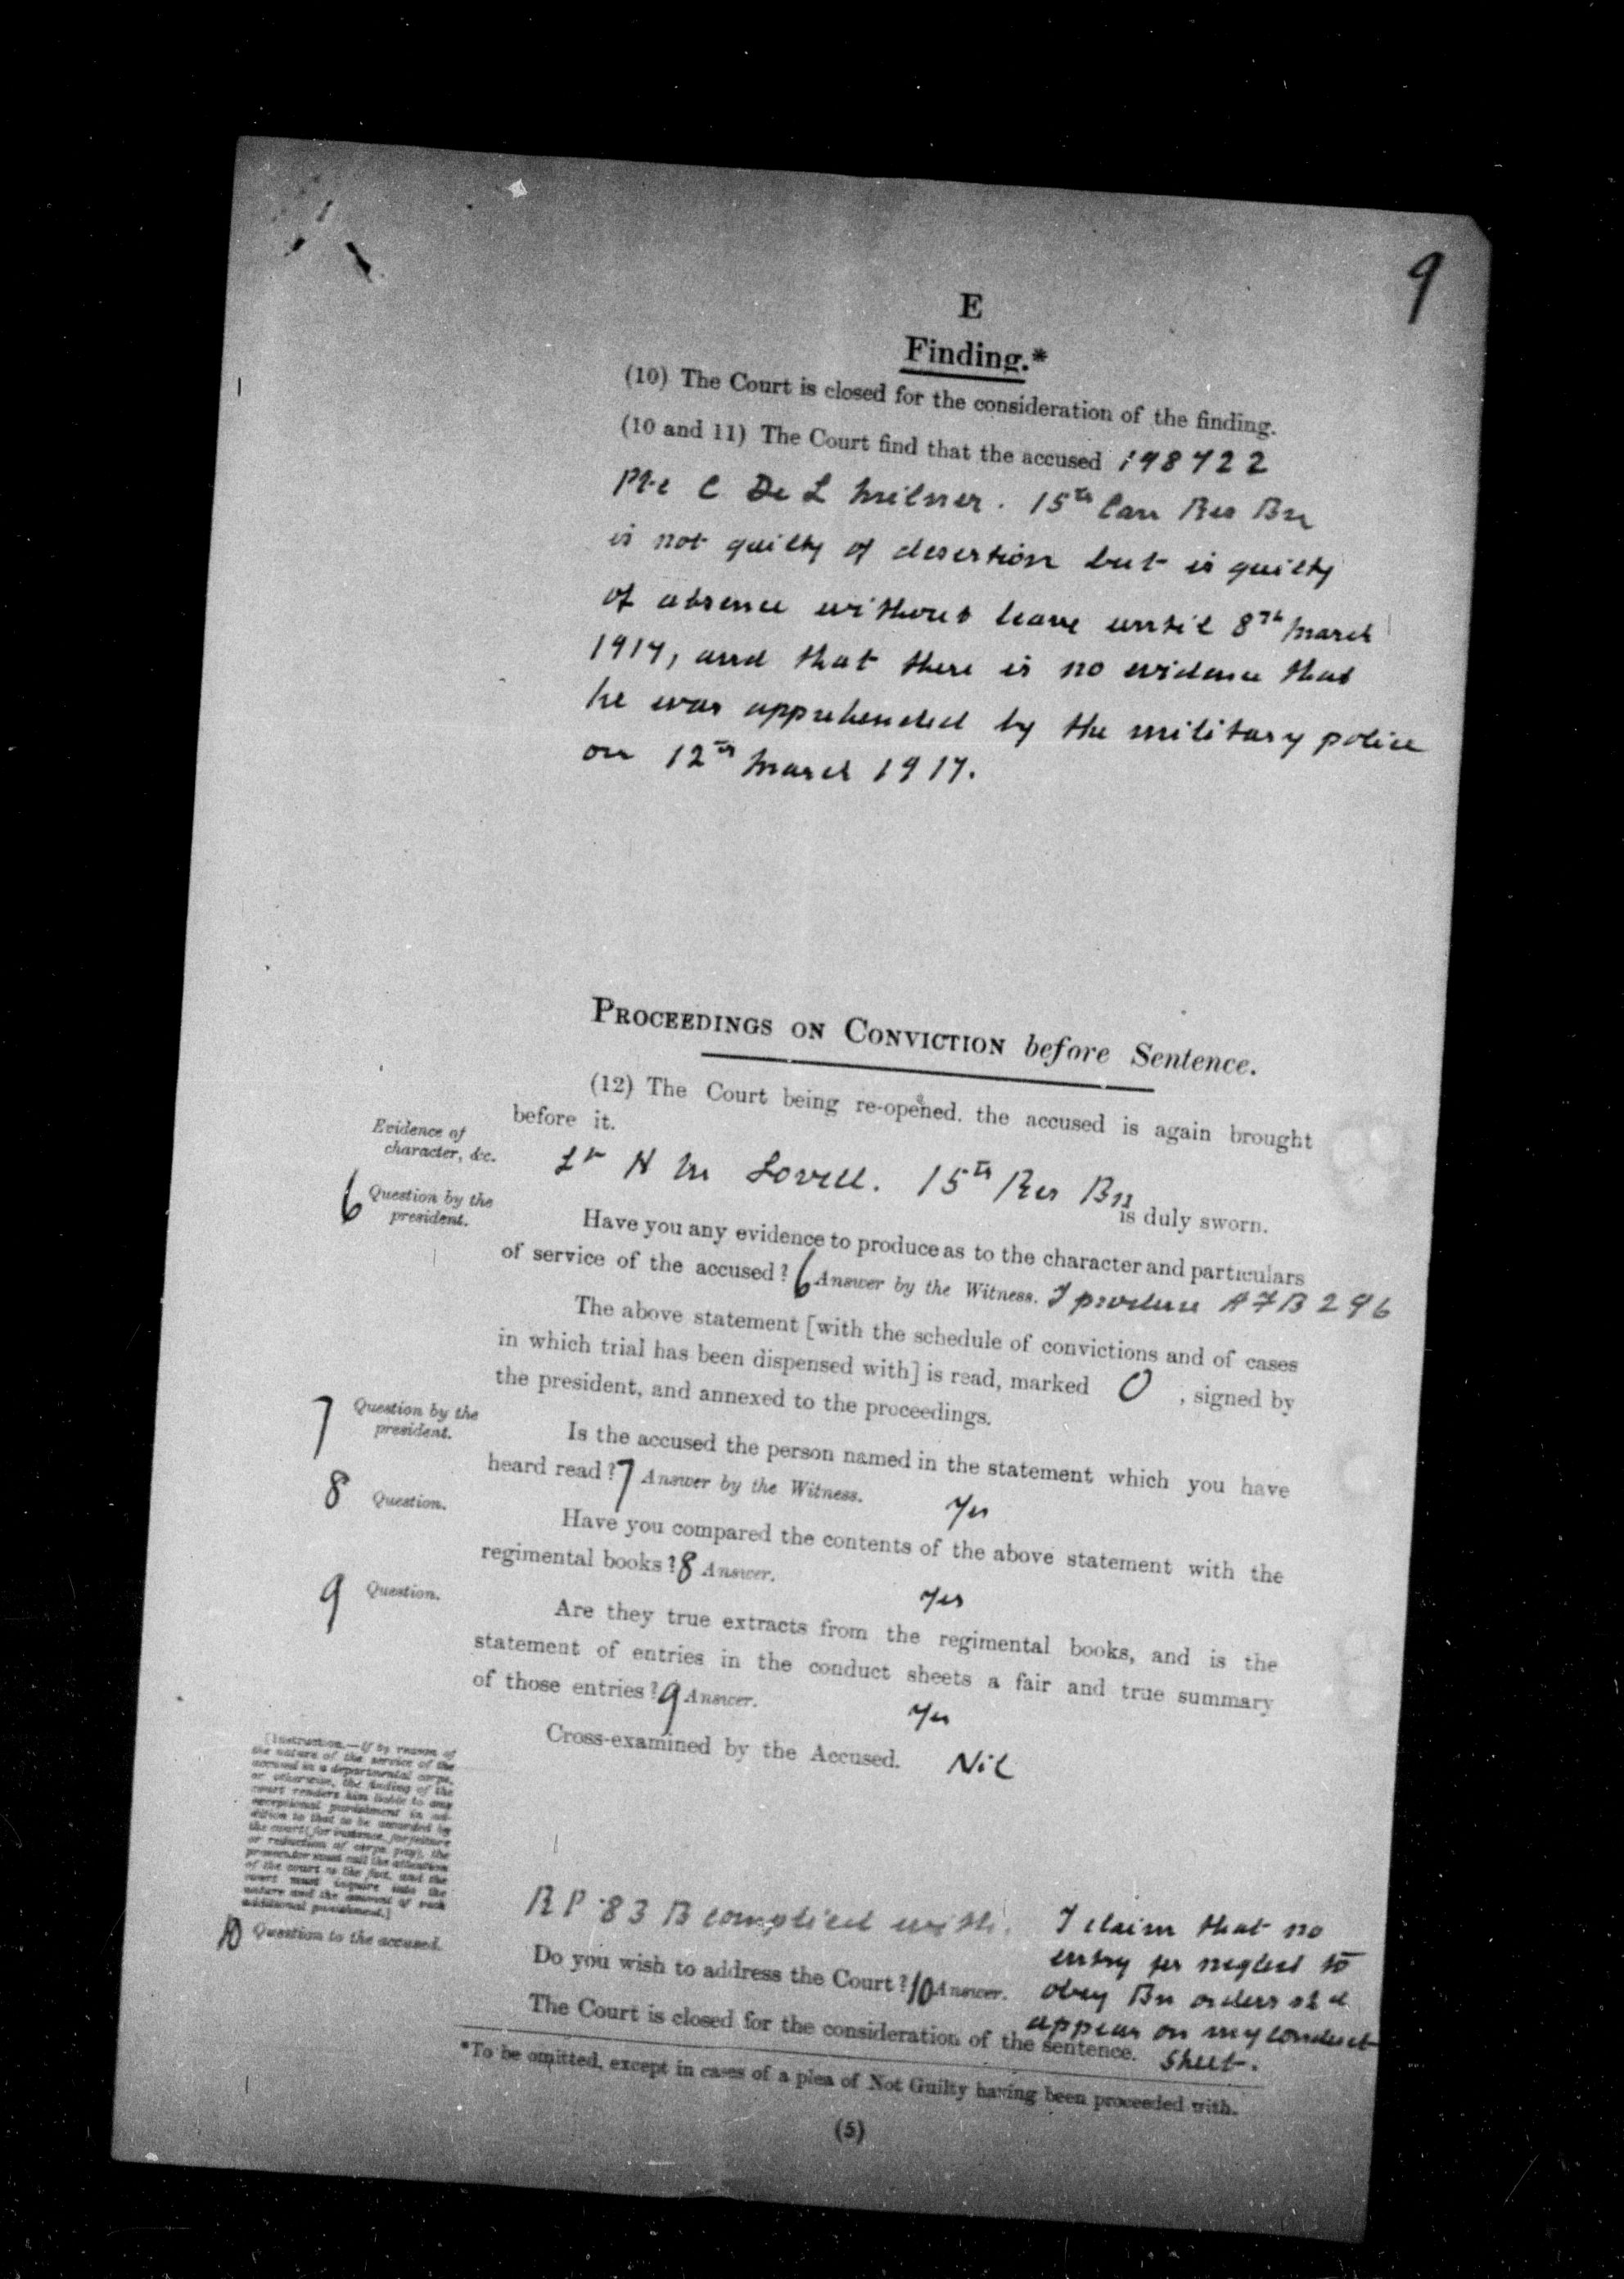 9
E
Finding.*
(10) The Court is closed for the consideration of the finding.
(10 and 11) The Court find that the accused 198722
Pte C De L Milner. 15th Can Res Bn
is not guilty of desertion but is guilty
of absence without leave until 8th March
1917, and that there is no evidence that
he was apprehended by the military police
on 12th March 1917.
PROCEEDINGS ON CONVICTION before Sentence.
(12) The Court being re-opened. the accused is again brought
before it.
Evidence of
character, &c.
Lt H M Lovell. 15th Res Bn
is duly sworn.
6 Question by the
president.
Have you any evidence to produce as to the character and particulars
of service of the accused? 6 Answer by the Witness. I produce A F B 296
The above statement [with the schedule of convictions and of cases
in which trial has been dispensed with] is read, marked O , signed by
the president, and annexed to the proceedings.
7 Question by the
president.
Is the accused the person named in the statement which you have
heard read? 7 Answer by the Witness. Yes
8 Question.
Have you compared the contents of the above statement with the
regimental books? 8 Answer. Yes
9 Question.
Are they true extracts from the regimental books, and is the
statement of entries in the conduct sheets a fair and true summary
of those entries? 9 Answer. Yes
Cross-examined by the Accused. Nil
[Instruction.—If by reason of
the nature of the service of the
accused in a departmental corps,
or otherwise, the finding of the
court renders him liable to any
exceptional punishment in ad-
dition to that to be awarded by
the court (for instance, forfeiture
or reduction of corps pay), the
prosecutor must call the attention
of the court to the fact, and the
court must inquire into the
nature and the amount of such
additional punishment.]
R P 83 B complied with.
10 Question to the accused.
Do you wish to address the Court? 10 Answer.
I claim that no
entry for neglect to
obey Bn orders shd
appear on my conduct
sheet.
The Court is closed for the consideration of the sentence.
*To be omitted, except in cases of a plea of Not Guilty having been proceeded with.
(5)